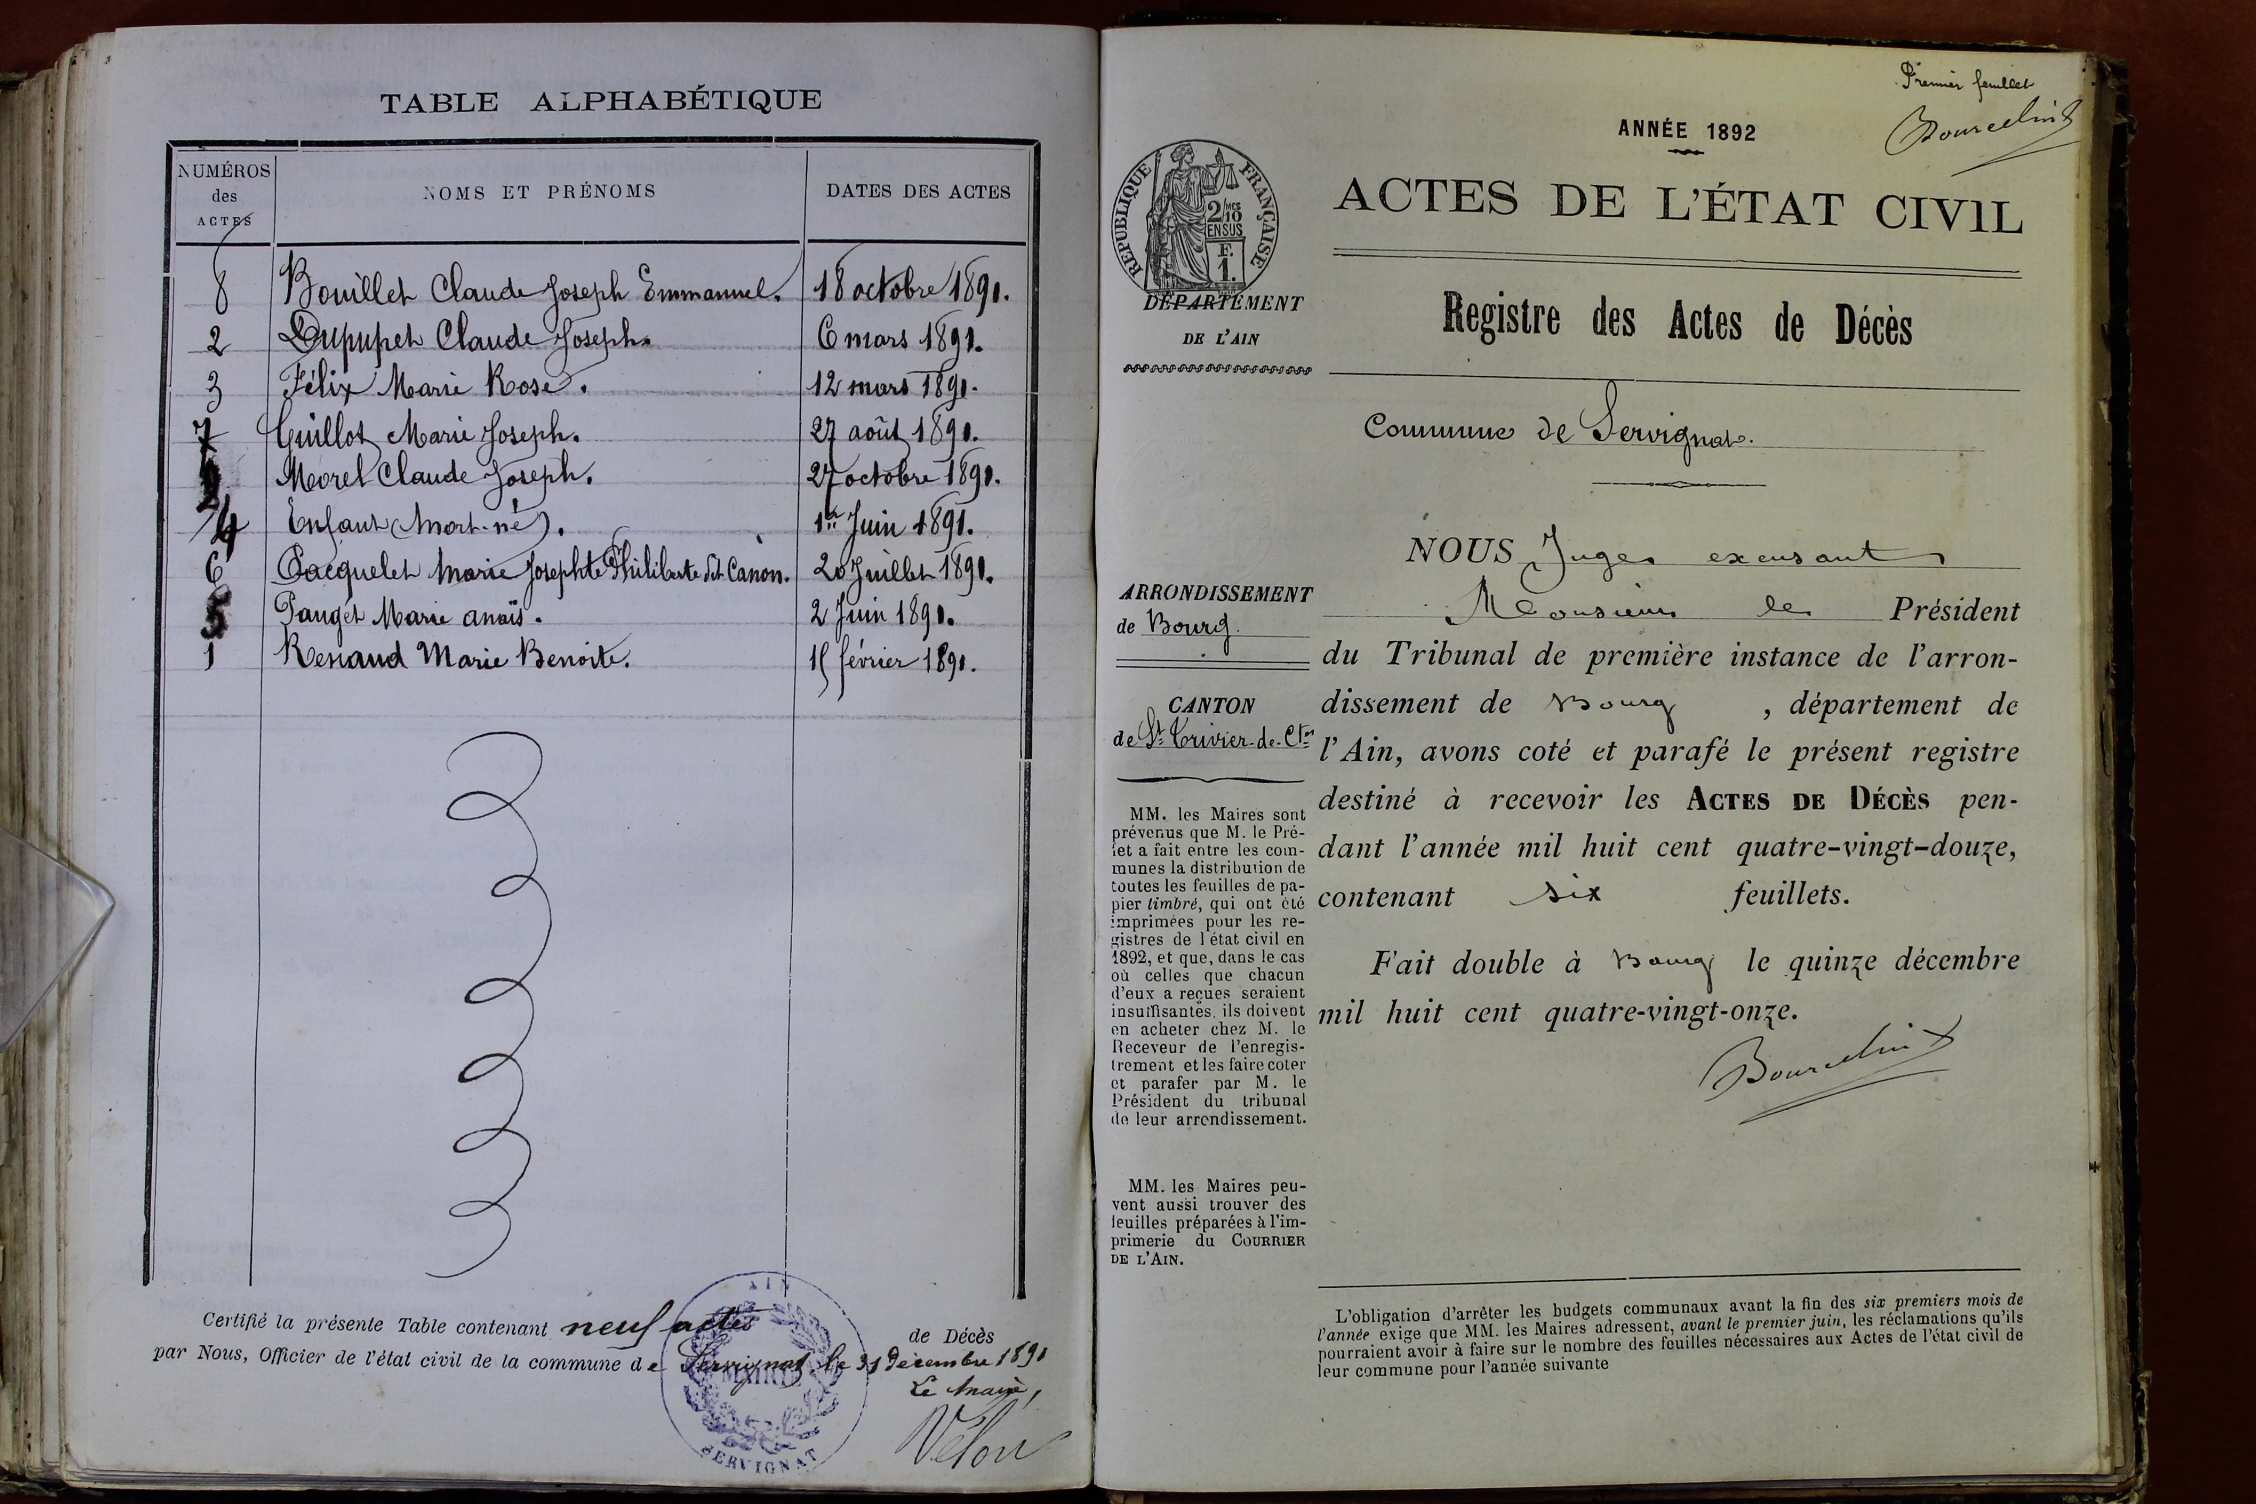 TABLE ALPHABÉTIQUE
NUMÉROS des ACTES NOMS ET PRÉNOMS DATES DES ACTES
8 Bouillet Claude Joseph Emmanuel. 18 octobre 1891.
2 Dupupet Claude Joseph. 6 mars 1891.
3 Félix Marie Rose. 12 mars 1891.
7 Guillot Marie Joseph. 27 août 1891.
Morel Claude Joseph. 27 octobre 1891.
4 Enfant (Mort-né). 1er Juin 1891.
6 Pacquelet Marie Josephte Philiberte dit Canon. 20 Juillet 1891.
5 Pauget Marie anaïs. 2 Juin 1891.
1 Renaud Marie Benoite. 15 février 1891.
Certifié la présente Table contenant neuf actes de Décès
par Nous, Officier de l'état civil de la commune de Servignat le 31 Décembre 1891
Le Maire,
Vélon
AIN
MAIRIE
SERVIGNAT
Premier feuillet
Bourcelin
ANNÉE 1892
ACTES DE L'ÉTAT CIVIL
RÉPUBLIQUE FRANÇAISE
2/10 MES
EN SUS
F.
1.
DÉPARTEMENT
DE L'AIN
Registre des Actes de Décès
Commune de Servignat.
ARRONDISSEMENT
de Bourg.
CANTON
de St Trivier-de-Ctes
MM. les Maires sont
prévenus que M. le Pré-
fet a fait entre les com-
munes la distribution de
toutes les feuilles de pa-
pier timbré, qui ont été
imprimées pour les re-
gistres de l'état civil en
1892, et que, dans le cas
où celles que chacun
d'eux a reçues seraient
insuffisantes, ils doivent
en acheter chez M. le
Receveur de l'enregis-
trement et les faire coter
et parafer par M. le
Président du tribunal
de leur arrondissement.
MM. les Maires peu-
vent aussi trouver des
feuilles préparées à l'im-
primerie du COURRIER
DE L'AIN.
NOUS Juge excusant
Monsieur le Président
du Tribunal de première instance de l'arron-
dissement de Bourg, département de
l'Ain, avons coté et parafé le présent registre
destiné à recevoir les ACTES DE DÉCÈS pen-
dant l'année mil huit cent quatre-vingt-douze,
contenant six feuillets.
Fait double à Bourg le quinze décembre
mil huit cent quatre-vingt-onze.
Bourcelin
L'obligation d'arrêter les budgets communaux avant la fin des six premiers mois de
l'année exige que MM. les Maires adressent, avant le premier juin, les réclamations qu'ils
pourraient avoir à faire sur le nombre des feuilles nécessaires aux Actes de l'état civil de
leur commune pour l'année suivante